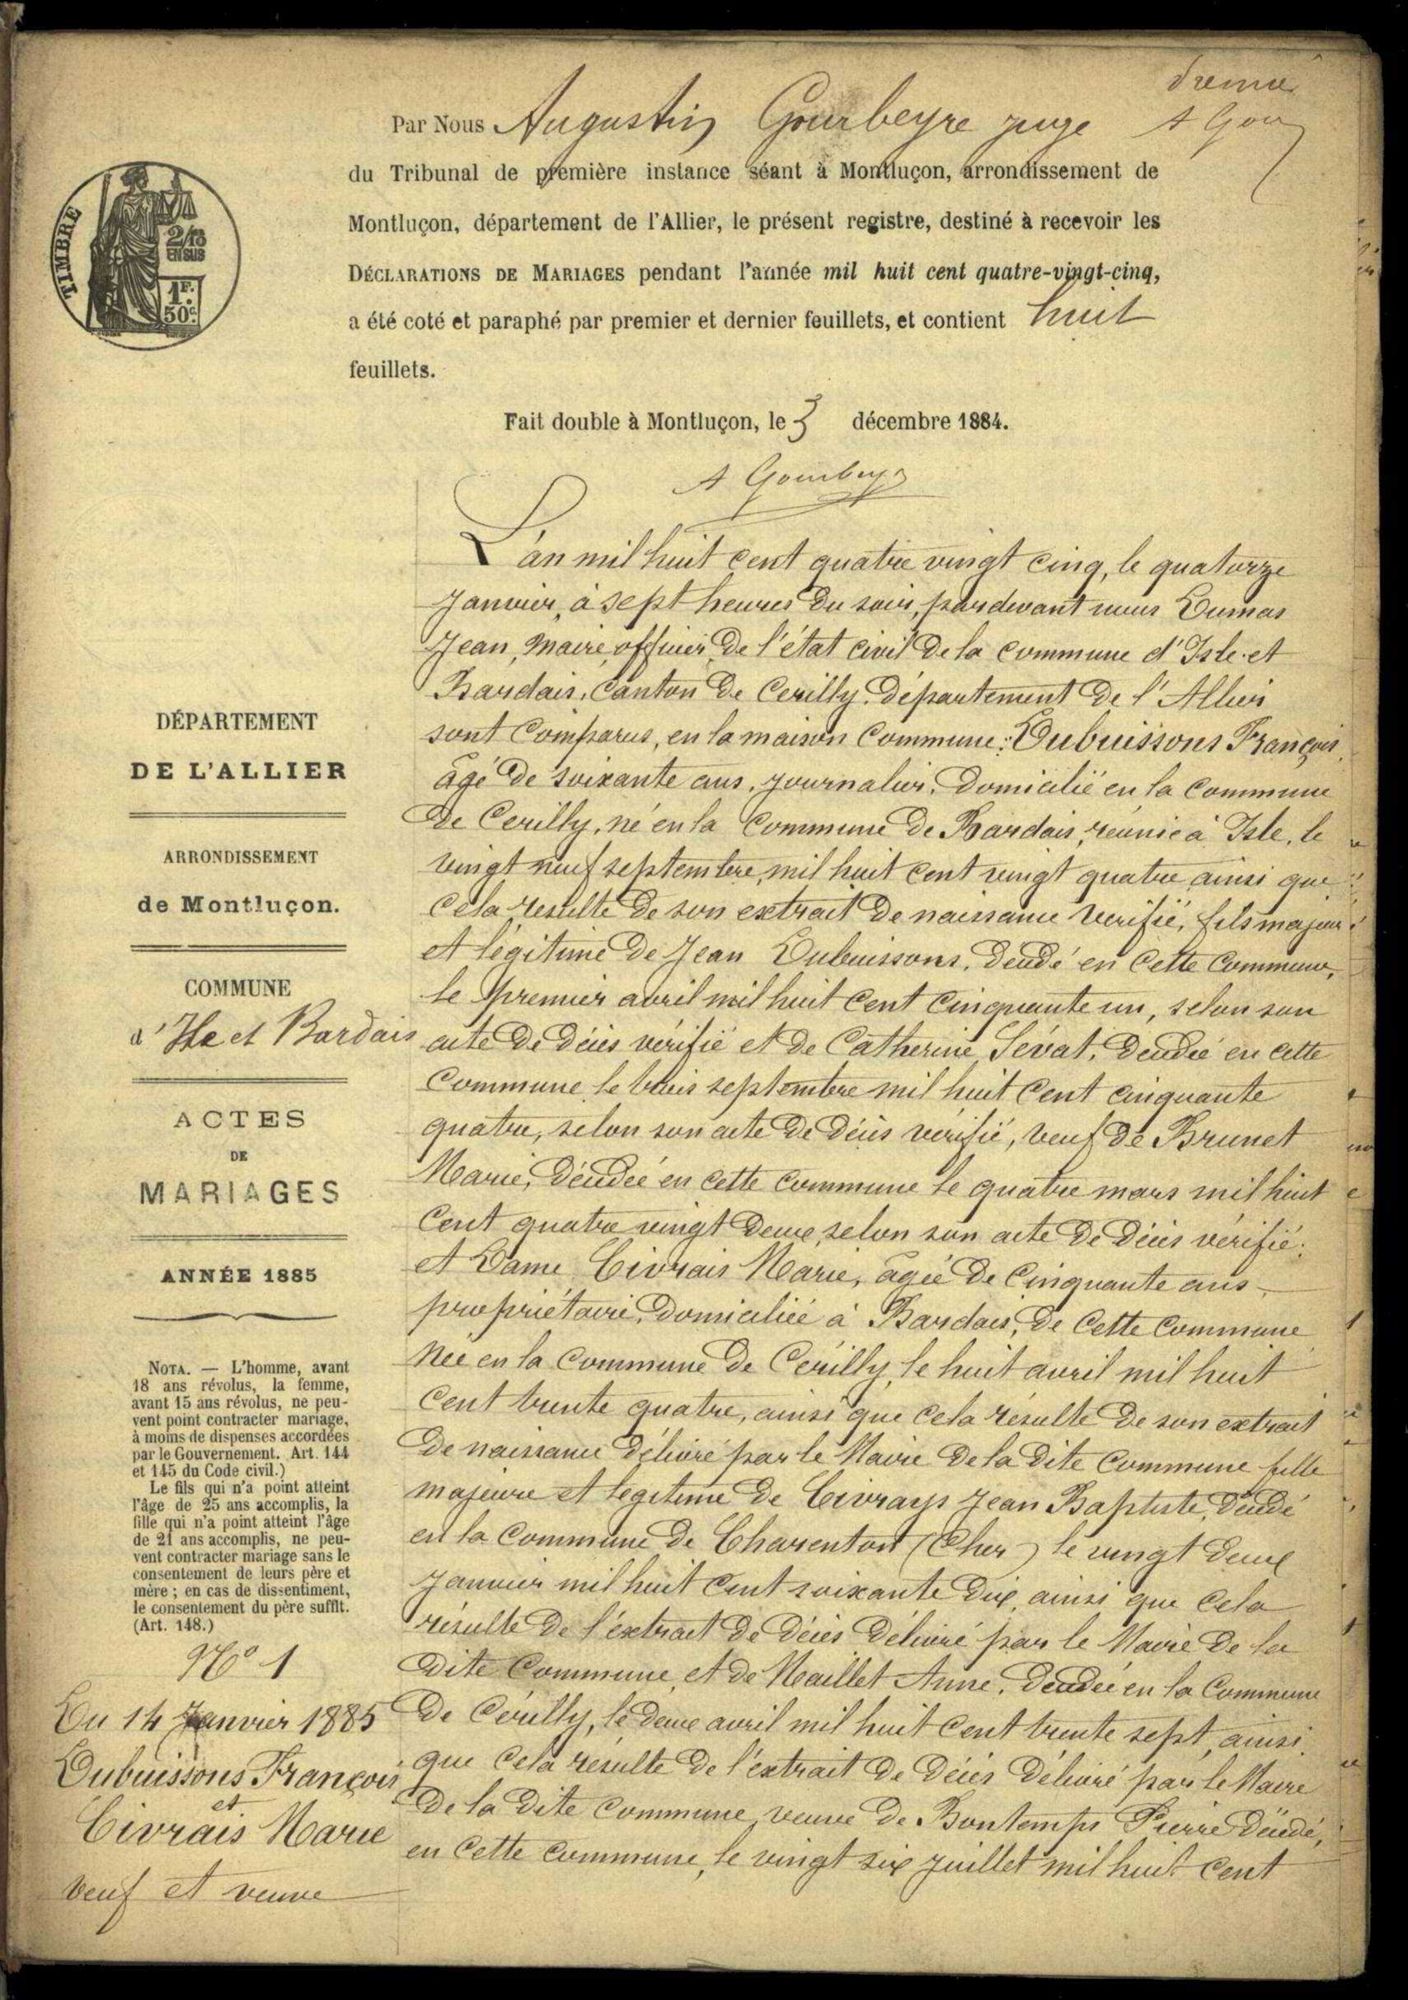 premier
A Gour
Par Nous Augustin Gourbeyre juge
du Tribunal de première instance séant à Montluçon, arrondissement de
Montluçon, département de l'Allier, le présent registre, destiné à recevoir les
DÉCLARATIONS DE MARIAGES pendant l'année mil huit cent quatre-vingt-cinq,
a été coté et paraphé par premier et dernier feuillets, et contient huit
feuillets.
Fait double à Montluçon, le 3 décembre 1884.
A Gourbeyre
TIMBRE
2/10
EN SUS
1F.
50c.
DÉPARTEMENT
DE L'ALLIER
ARRONDISSEMENT
de Montluçon.
COMMUNE
d'Isle et Bardais
ACTES
DE
MARIAGES
ANNÉE 1885
NOTA. — L'homme, avant
18 ans révolus, la femme,
avant 15 ans révolus, ne peu-
vent point contracter mariage,
à moins de dispenses accordées
par le Gouvernement. Art. 144
et 145 du Code civil.)
Le fils qui n'a point atteint
l'âge de 25 ans accomplis, la
fille qui n'a point atteint l'âge
de 21 ans accomplis, ne peu-
vent contracter mariage sans le
consentement de leurs père et
mère ; en cas de dissentiment,
le consentement du père suffit.
(Art. 148.)
No 1
Du 14 Janvier 1885
Dubuissons François
et
Civrais Marie
veuf et veuve
L'an mil huit cent quatre vingt cinq, le quatorze
Janvier, à sept heures du soir, pardevant nous Dumas
Jean, Maire, officier de l'état civil de la commune d'Isle et
Bardais, canton de Cerilly, département de l'Allier
sont comparus, en la maison commune : Dubuissons François,
âgé de soixante ans, journalier, domicilié en la commune
de Cerilly, né en la commune de Bardais, réunie à Isle, le
vingt neuf septembre, mil huit cent vingt quatre ainsi que
cela resulte de son extrait de naissance verifié, fils majeur
et légitime de Jean Dubuissons, décédé en cette commune,
le premier avril mil huit cent cinquante un, selon son
acte de décès vérifié et de Catherine Sévat, décédée en cette
commune le trois septembre mil huit cent cinquante
quatre, selon son acte de décès vérifié, veuf de Brunet
Marie, décédée en cette commune le quatre mars mil huit
cent quatre vingt deux, selon son acte de décès vérifié:
et Dame Civrais Marie, âgée de cinquante ans,
propriétaire, domiciliée à Bardais, de cette commune
née en la commune de Cérilly, le huit avril mil huit
cent trente quatre, ainsi que cela résulte de son extrait
de naissance délivré par le Maire de la dite commune fille
majeure et legitime de Civrays Jean Baptiste, décédé
en la commune de Charenton (Cher) le vingt deux
Janvier mil huit cent soixante dix, ainsi que cela
résulte de l'extrait de décès délivré par le Maire de la
dite commune, et de Maillet Anne, décédée en la commune
de Cérilly, le deux avril mil huit cent trente sept, ainsi
que cela résulte de l'extrait de décès délivré par le Maire
de la dite commune, veuve de Bontemps Pierre décédé,
en cette commune, le vingt six juillet mil huit cent